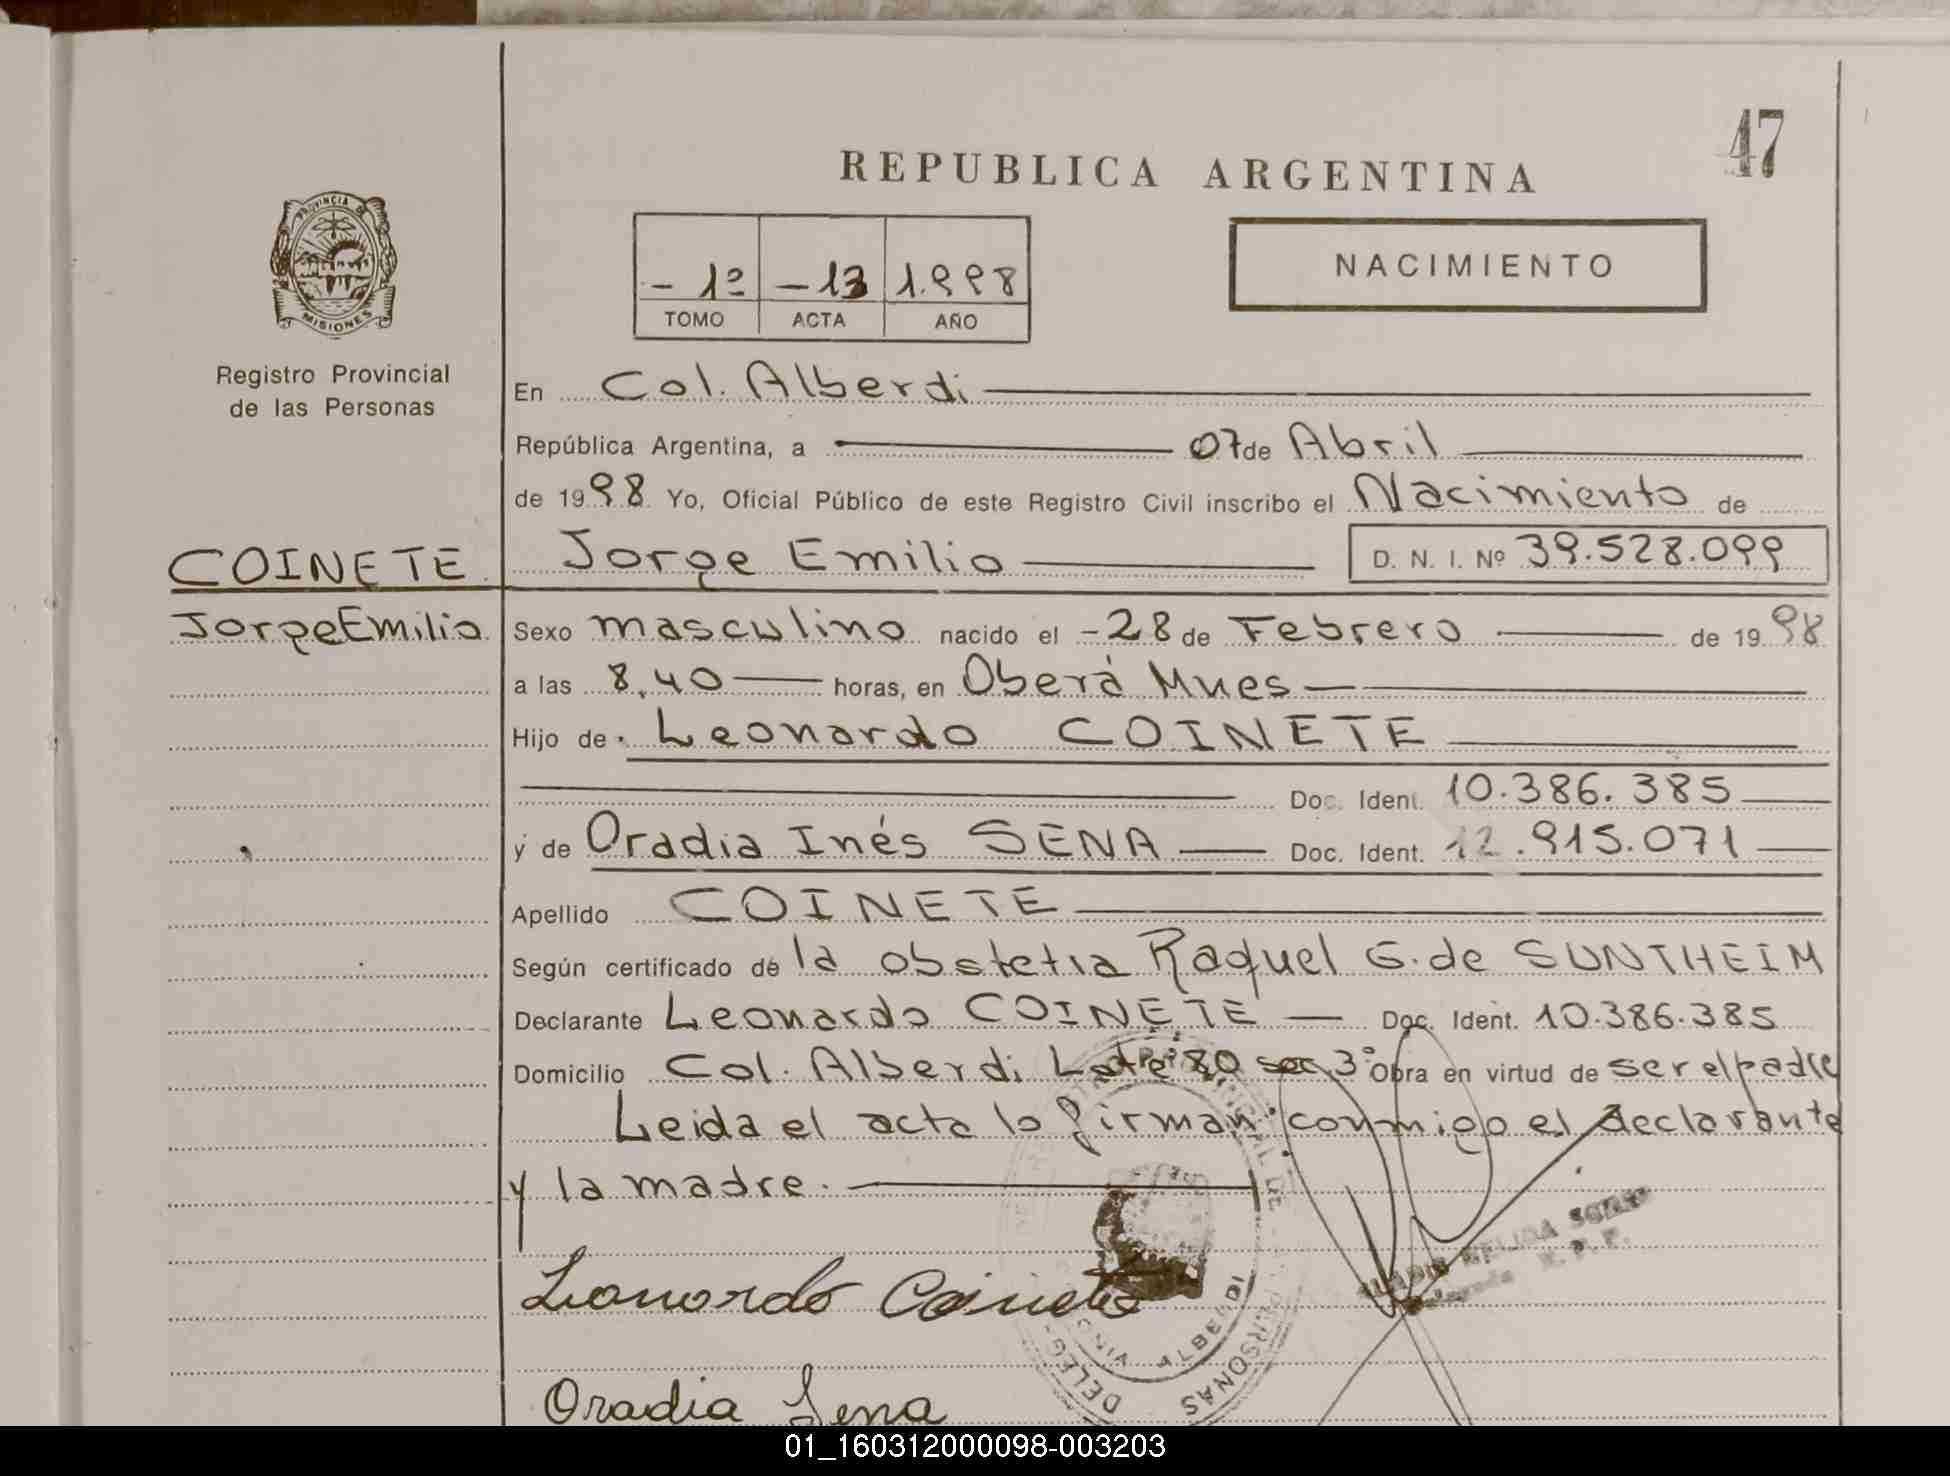 47
REPUBLICA ARGENTINA
PROVINCIA DE
MISIONES
Registro Provincial
de las Personas
- 1º - 13 1.998
TOMO ACTA AÑO
NACIMIENTO
En Col. Alberdi
República Argentina, a 07 de Abril
de 1998 Yo, Oficial Público de este Registro Civil inscribo el Nacimiento de
COINETE Jorge Emilio D. N. I. Nº 39.528.099
Jorge Emilio Sexo masculino nacido el -28 de Febrero de 1998
a las 8,40 horas, en Oberá Mnes
Hijo de Leonardo COINETE
Doc. Ident. 10.386.385
y de Oradia Inés SENA Doc. Ident. 12.915.071
Apellido COINETE
Según certificado de la obstetra Raquel G. de SUNTHEIM
Declarante Leonardo COINETE Doc. Ident. 10.386.385
Domicilio Col. Alberdi Lote 80 sec 3º Obra en virtud de ser el padre
Leida el acta lo firman conmigo el declarante
y la madre.
NELIDA
Leonardo Coinete
ALBERDI
PERSONAS
Oradia Sena
01_160312000098-003203